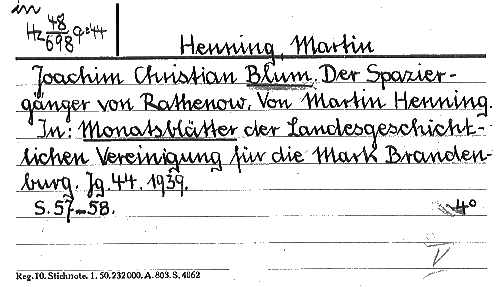 in
Hz 48/698 q:44
Henning, Martin
Joachim Christian Blum. Der Spazier-
gänger von Rathenow. Von Martin Henning.
In: Monatsblätter der Landesgeschicht-
lichen Vereinigung für die Mark Branden-
burg. Jg. 44. 1939.
S. 57-58.
4°
V
Reg. 10. Stichnote. 1. 50. 232 000. A. 803. S. 4062